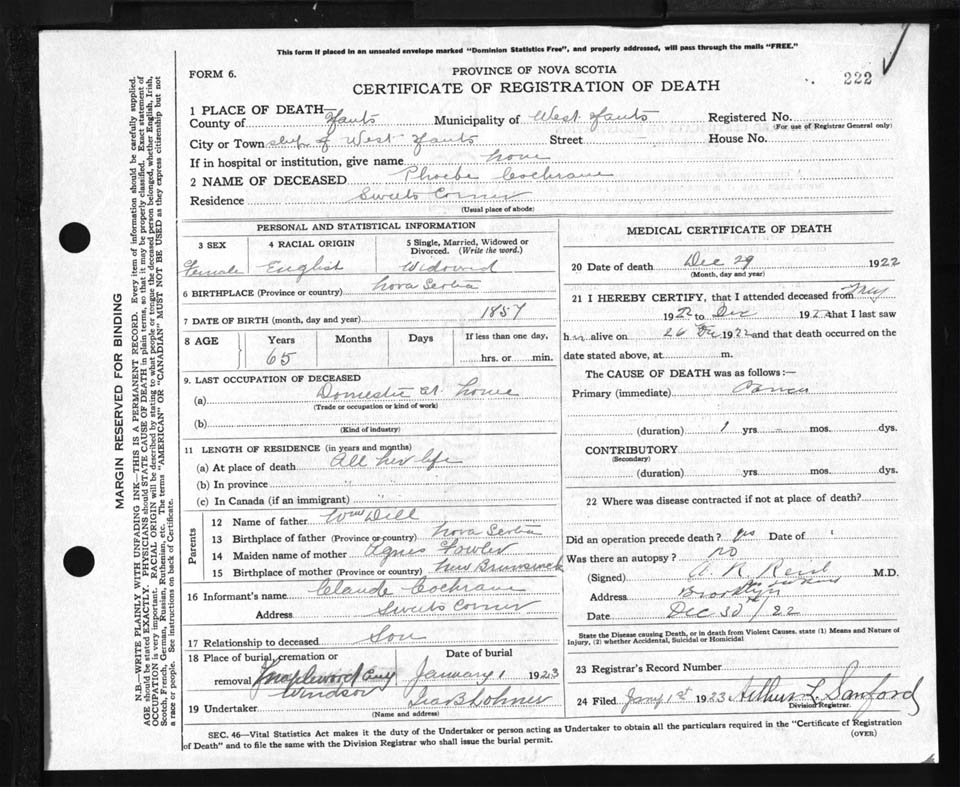 This form if placed in an unsealed envelope marked "Dominion Statistics Free", and properly addressed, will pass through the mails "FREE."
FORM 6.
PROVINCE OF NOVA SCOTIA
222
CERTIFICATE OF REGISTRATION OF DEATH
1 PLACE OF DEATH—
County of Hants Municipality of West Hants Registered No.
(For use of Registrar General only)
City or Town of West Hants Street House No.
If in hospital or institution, give name home
2 NAME OF DECEASED Phoebe Cochrane
Residence Sweets Corner
(Usual place of abode)
PERSONAL AND STATISTICAL INFORMATION
3 SEX 4 RACIAL ORIGIN 5 Single, Married, Widowed or Divorced. (Write the word.)
Female English Widowed
6 BIRTHPLACE (Province or country) Nova Scotia
7 DATE OF BIRTH (month, day and year) 1857
8 AGE Years Months Days If less than one day,
65 hrs. or min.
9. LAST OCCUPATION OF DECEASED
(a) Domestic at home
(Trade or occupation or kind of work)
(b)
(Kind of industry)
11 LENGTH OF RESIDENCE (in years and months)
(a) At place of death All her life
(b) In province " "
(c) In Canada (if an immigrant)
Parents
12 Name of father Wm Dill
13 Birthplace of father (Province or country) Nova Scotia
14 Maiden name of mother Agnes Fowler
15 Birthplace of mother (Province or country) New Brunswick
16 Informant's name Claude Cochrane
Address Sweets Corner
17 Relationship to deceased Son
18 Place of burial, cremation or removal Date of burial
Maplewood Cemy January 1 1923
Windsor
19 Undertaker
(Name and address)
MEDICAL CERTIFICATE OF DEATH
20 Date of death Dec 29 1922
(Month, day and year)
21 I HEREBY CERTIFY, that I attended deceased from
1922 to Dec 1922 that I last saw
her alive on 26 Dec 1922 and that death occurred on the
date stated above, at m.
The CAUSE OF DEATH was as follows:—
Primary (immediate) Cancer
(duration) 1 yrs. mos. dys.
CONTRIBUTORY
(Secondary)
(duration) yrs. mos. dys.
22 Where was disease contracted if not at place of death?
Did an operation precede death? yes Date of
Was there an autopsy? no
(Signed) A. R. M.D.
Address Brooklyn
Date Dec 30th/22
State the Disease causing Death, or in death from Violent Causes, state (1) Means and Nature of
Injury, (2) whether Accidental, Suicidal or Homicidal
23 Registrar's Record Number
24 Filed Jany 1st 1923 Arthur L. Sanford
Division Registrar.
SEC. 46—Vital Statistics Act makes it the duty of the Undertaker or person acting as Undertaker to obtain all the particulars required in the "Certificate of Registration
of Death" and to file the same with the Division Registrar who shall issue the burial permit.
(OVER)
MARGIN RESERVED FOR BINDING
N.B.—WRITE PLAINLY WITH UNFADING INK—THIS IS A PERMANENT RECORD. Every item of information should be carefully supplied.
AGE should be stated EXACTLY. PHYSICIANS should STATE CAUSE OF DEATH in plain terms, so that it may be properly classified. Exact statement of
OCCUPATION is very important. RACIAL ORIGIN will be described by stating to what people or tongue the deceased person belonged, whether English, Irish,
Scotch, French, German, Russian, Ruthenian, etc. The terms "AMERICAN" OR "CANADIAN" MUST NOT BE USED as they express citizenship but not
a race or people. See instructions on back of Certificate.